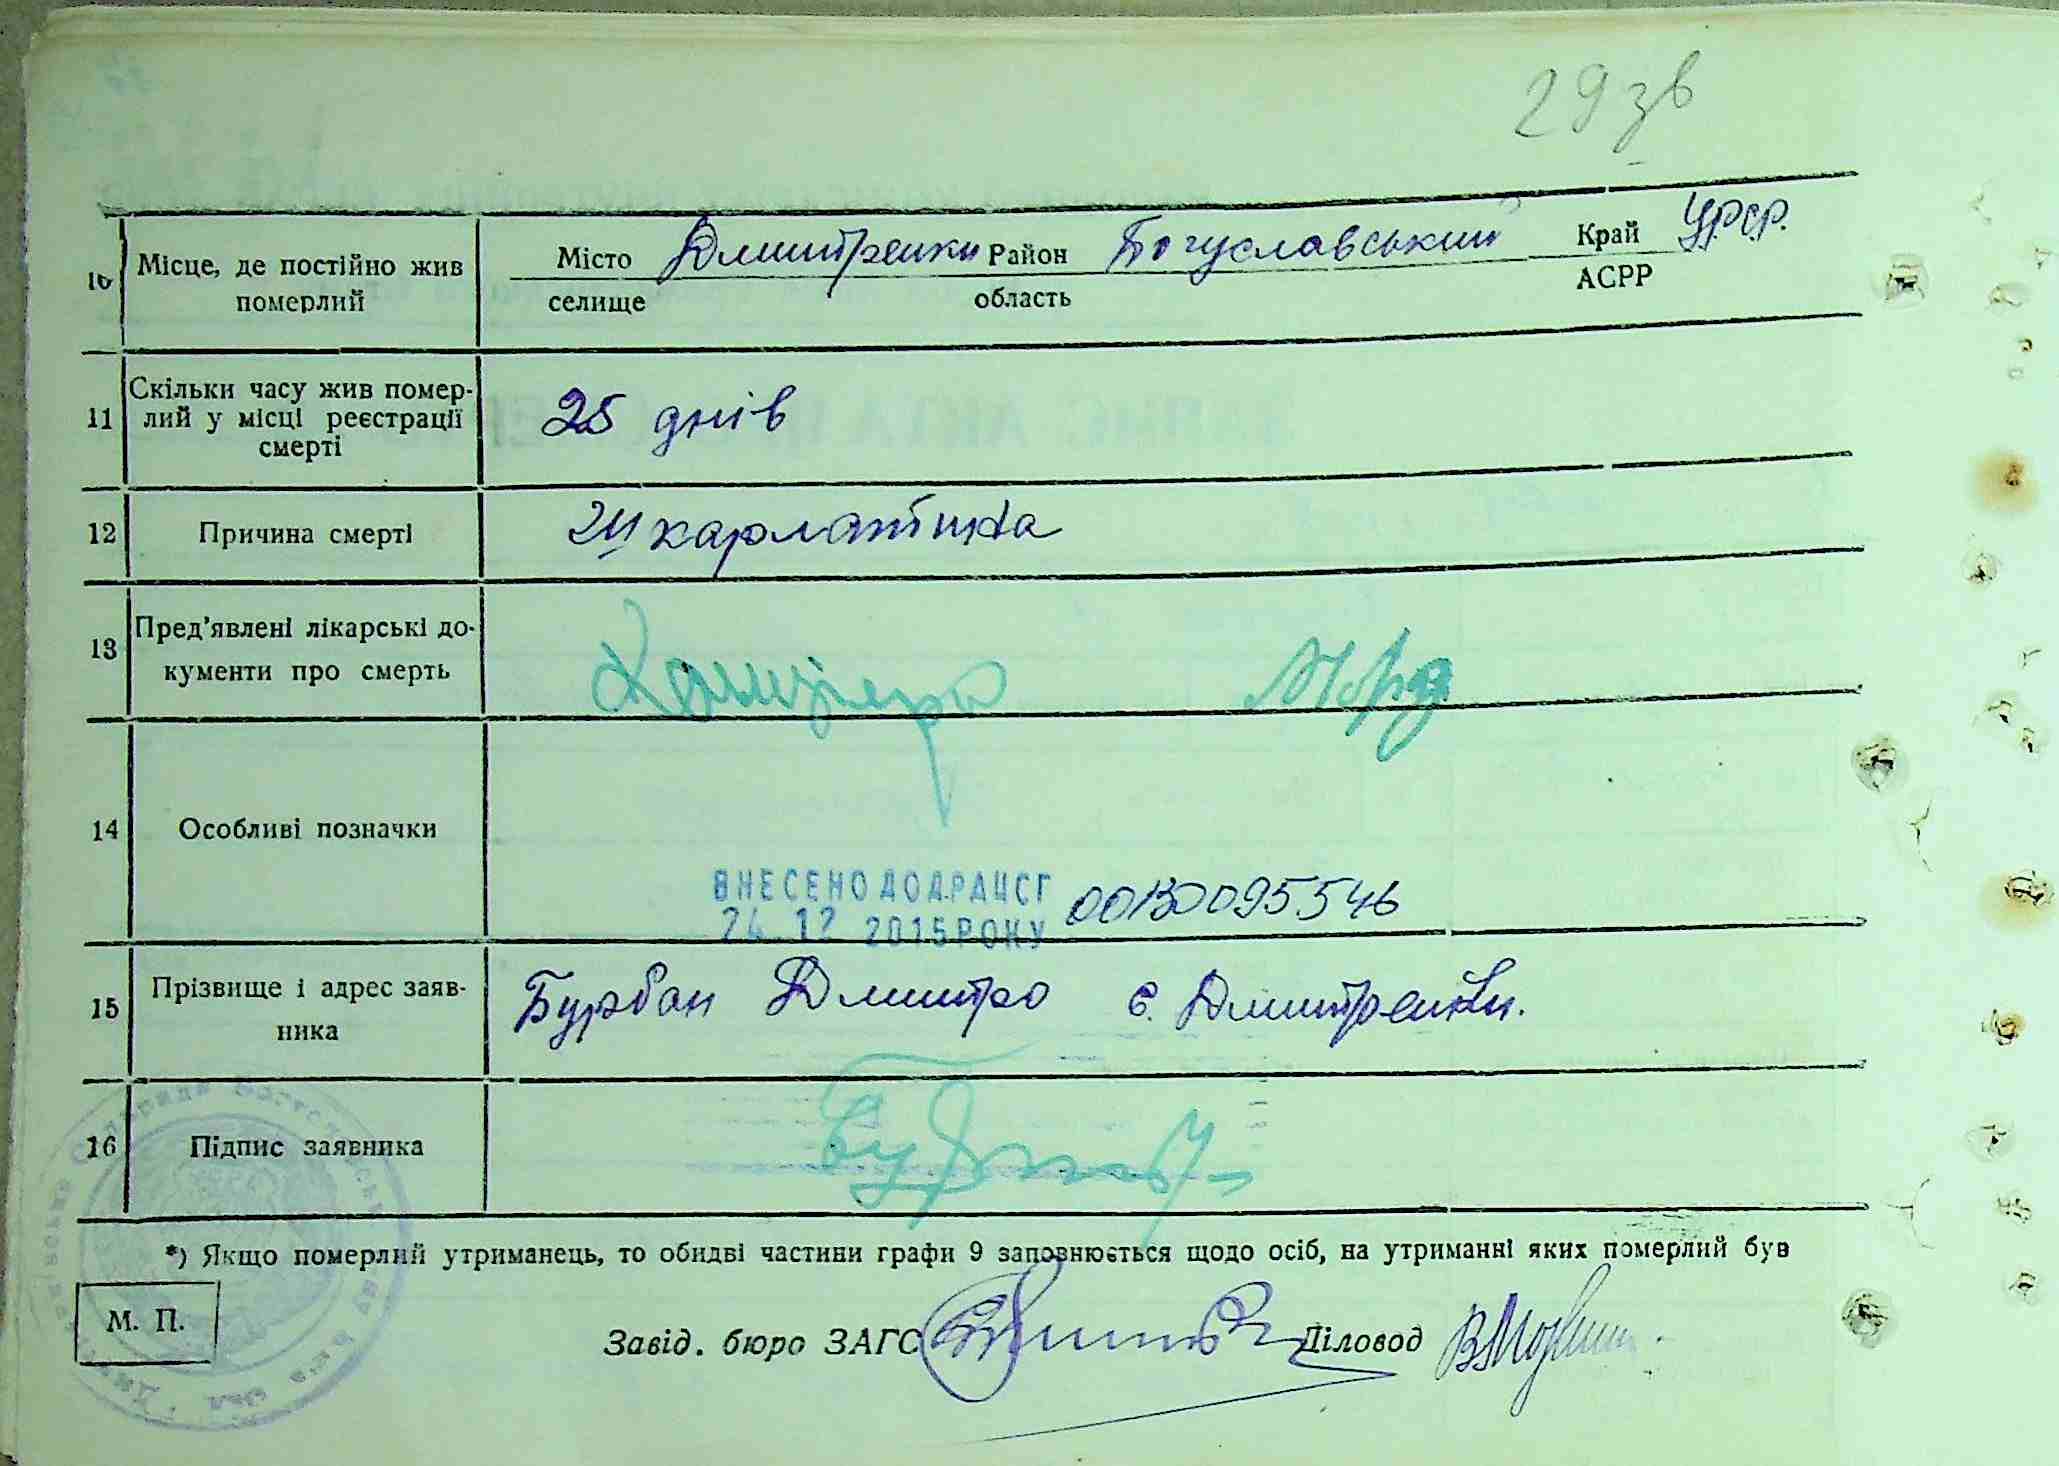 29 зв
10 Місце, де постійно жив померлий Місто селище Дмитренки Район область Богуславський Край АСРР УРСР.
11 Скільки часу жив помер-
лий у місці реєстрації
смерті
25 днів
12 Причина смерті Шкарлатина
13 Пред'явлені лікарські до-
кументи про смерть
14 Особливі позначки
ВНЕСЕНО ДО ДРАЦСГ
24 12 2015 РОКУ 00130095546
15 Прізвище і адрес заяв-
ника
Бурбан Дмитро с. Дмитренки.
16 Підпис заявника
*) Якщо померлий утриманець, то обидві частини графи 9 заповнюється щодо осіб, на утриманні яких померлий був
М. П.
Завід. бюро ЗАГС Діловод